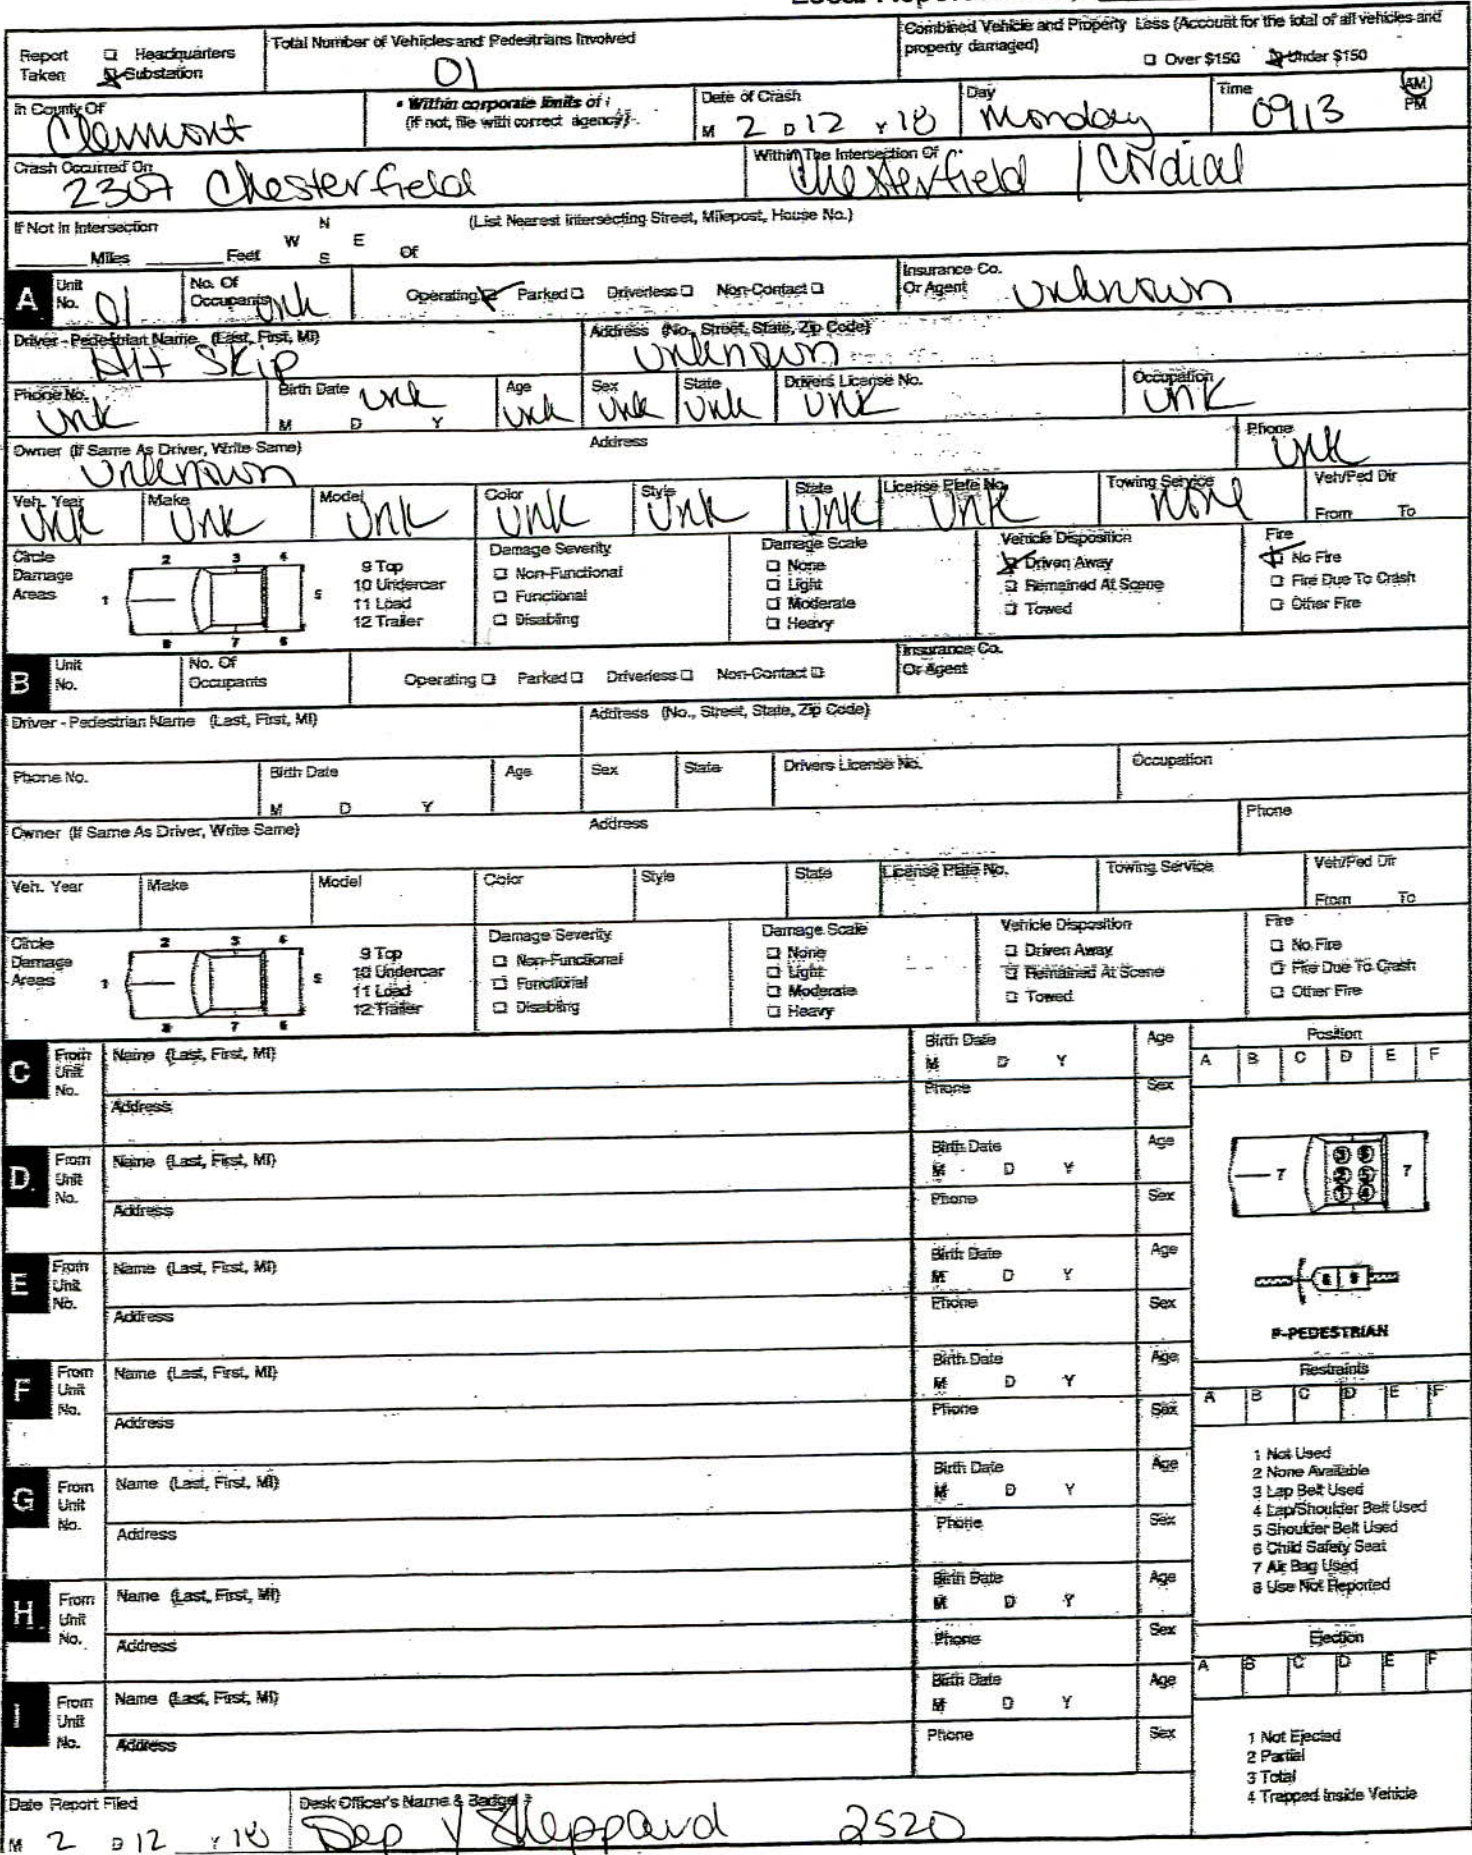 Report Taken
☐ Headquarters
☒ Substation
Total Number of Vehicles and Pedestrians Involved
01
Combined Vehicle and Property Loss (Account for the total of all vehicles and property damaged)
☐ Over $150 ☒ Under $150
In County Of
Clermont
• Within corporate limits of :
(If not, file with correct agency).
Date of Crash
M 2 D 12 Y 18
Day
Monday
Time
0913
AM
PM
Crash Occurred On
2307 Chesterfield
Within The Intersection Of
Chesterfield / Cordial
If Not In Intersection
(List Nearest Intersecting Street, Milepost, House No.)
Miles Feet N W E S Of
A
Unit No. 01
No. Of Occupants unk
Operating ☒ Parked ☐ Driverless ☐ Non-Contact ☐
Insurance Co. Or Agent unknown
Driver - Pedestrian Name (Last, First, MI)
Hit Skip
Address (No., Street, State, Zip Code)
unknown
Phone No. unk
Birth Date unk
M D Y
Age unk
Sex unk
State unk
Drivers License No. unk
Occupation unk
Owner (If Same As Driver, Write Same)
unknown
Address
Phone unk
Veh. Year unk
Make unk
Model unk
Color unk
Style unk
State unk
License Plate No. unk
Towing Service none
Veh/Ped Dir
From To
Circle Damage Areas
1 2 3 4 5 6 7 8
9 Top
10 Undercar
11 Load
12 Trailer
Damage Severity
☐ Non-Functional
☐ Functional
☐ Disabling
Damage Scale
☐ None
☐ Light
☐ Moderate
☐ Heavy
Vehicle Disposition
☒ Driven Away
☐ Remained At Scene
☐ Towed
Fire
☒ No Fire
☐ Fire Due To Crash
☐ Other Fire
B
Unit No.
No. Of Occupants
Operating ☐ Parked ☐ Driverless ☐ Non-Contact ☐
Insurance Co. Or Agent
Driver - Pedestrian Name (Last, First, MI)
Address (No., Street, State, Zip Code)
Phone No.
Birth Date
M D Y
Age
Sex
State
Drivers License No.
Occupation
Owner (If Same As Driver, Write Same)
Address
Phone
Veh. Year
Make
Model
Color
Style
State
License Plate No.
Towing Service
Veh/Ped Dir
From To
Circle Damage Areas
1 2 3 4 5 6 7 8
9 Top
10 Undercar
11 Load
12 Trailer
Damage Severity
☐ Non-Functional
☐ Functional
☐ Disabling
Damage Scale
☐ None
☐ Light
☐ Moderate
☐ Heavy
Vehicle Disposition
☐ Driven Away
☐ Remained At Scene
☐ Towed
Fire
☐ No Fire
☐ Fire Due To Crash
☐ Other Fire
C
From Unit No.
Name (Last, First, MI)
Birth Date
M D Y
Age
Address
Phone
Sex
D
From Unit No.
Name (Last, First, MI)
Birth Date
M D Y
Age
Address
Phone
Sex
E
From Unit No.
Name (Last, First, MI)
Birth Date
M D Y
Age
Address
Phone
Sex
F
From Unit No.
Name (Last, First, MI)
Birth Date
M D Y
Age
Address
Phone
Sex
G
From Unit No.
Name (Last, First, MI)
Birth Date
M D Y
Age
Address
Phone
Sex
H
From Unit No.
Name (Last, First, MI)
Birth Date
M D Y
Age
Address
Phone
Sex
I
From Unit No.
Name (Last, First, MI)
Birth Date
M D Y
Age
Address
Phone
Sex
Position
A B C D E F
7 3 6 2 5 1 4 7
8 9
P-PEDESTRIAN
Restraints
A B C D E F
1 Not Used
2 None Available
3 Lap Belt Used
4 Lap/Shoulder Belt Used
5 Shoulder Belt Used
6 Child Safety Seat
7 Air Bag Used
8 Use Not Reported
Ejection
A B C D E F
1 Not Ejected
2 Partial
3 Total
4 Trapped Inside Vehicle
Date Report Filed
M 2 D 12 Y 18
Desk Officer's Name & Badge #
Dep V Sheppard 2520